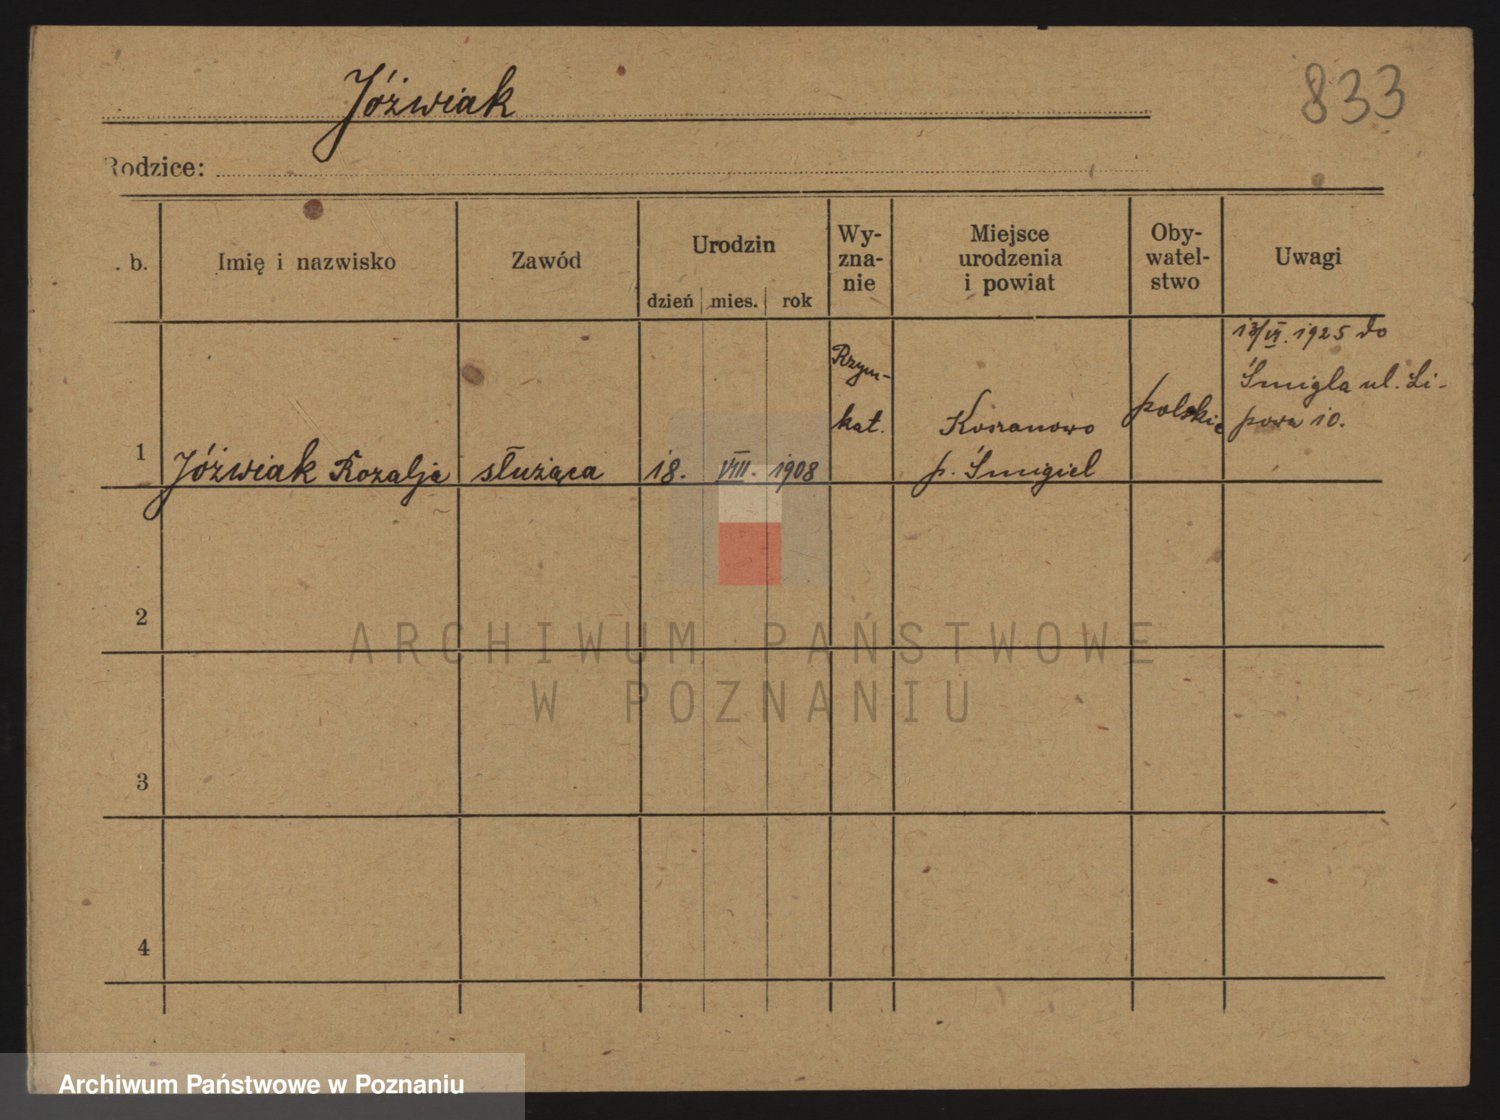 Jóźwiak
833
Rodzice:
. b.
Imię i nazwisko
Zawód
Urodzin
dzień mies. rok
Wy-
zna-
nie
Miejsce
urodzenia
i powiat
Oby-
watel-
stwo
Uwagi
1
Jóźwiak Rozalja
służąca
18. VIII. 1908
Rzym-
kat.
Koszanowo
p. Śmigiel
polskie
13/VI. 1925 do
Śmigla ul. Li-
powa 10.
2
3
4
ARCHIWUM PAŃSTWOWE
W POZNANIU
Archiwum Państwowe w Poznaniu